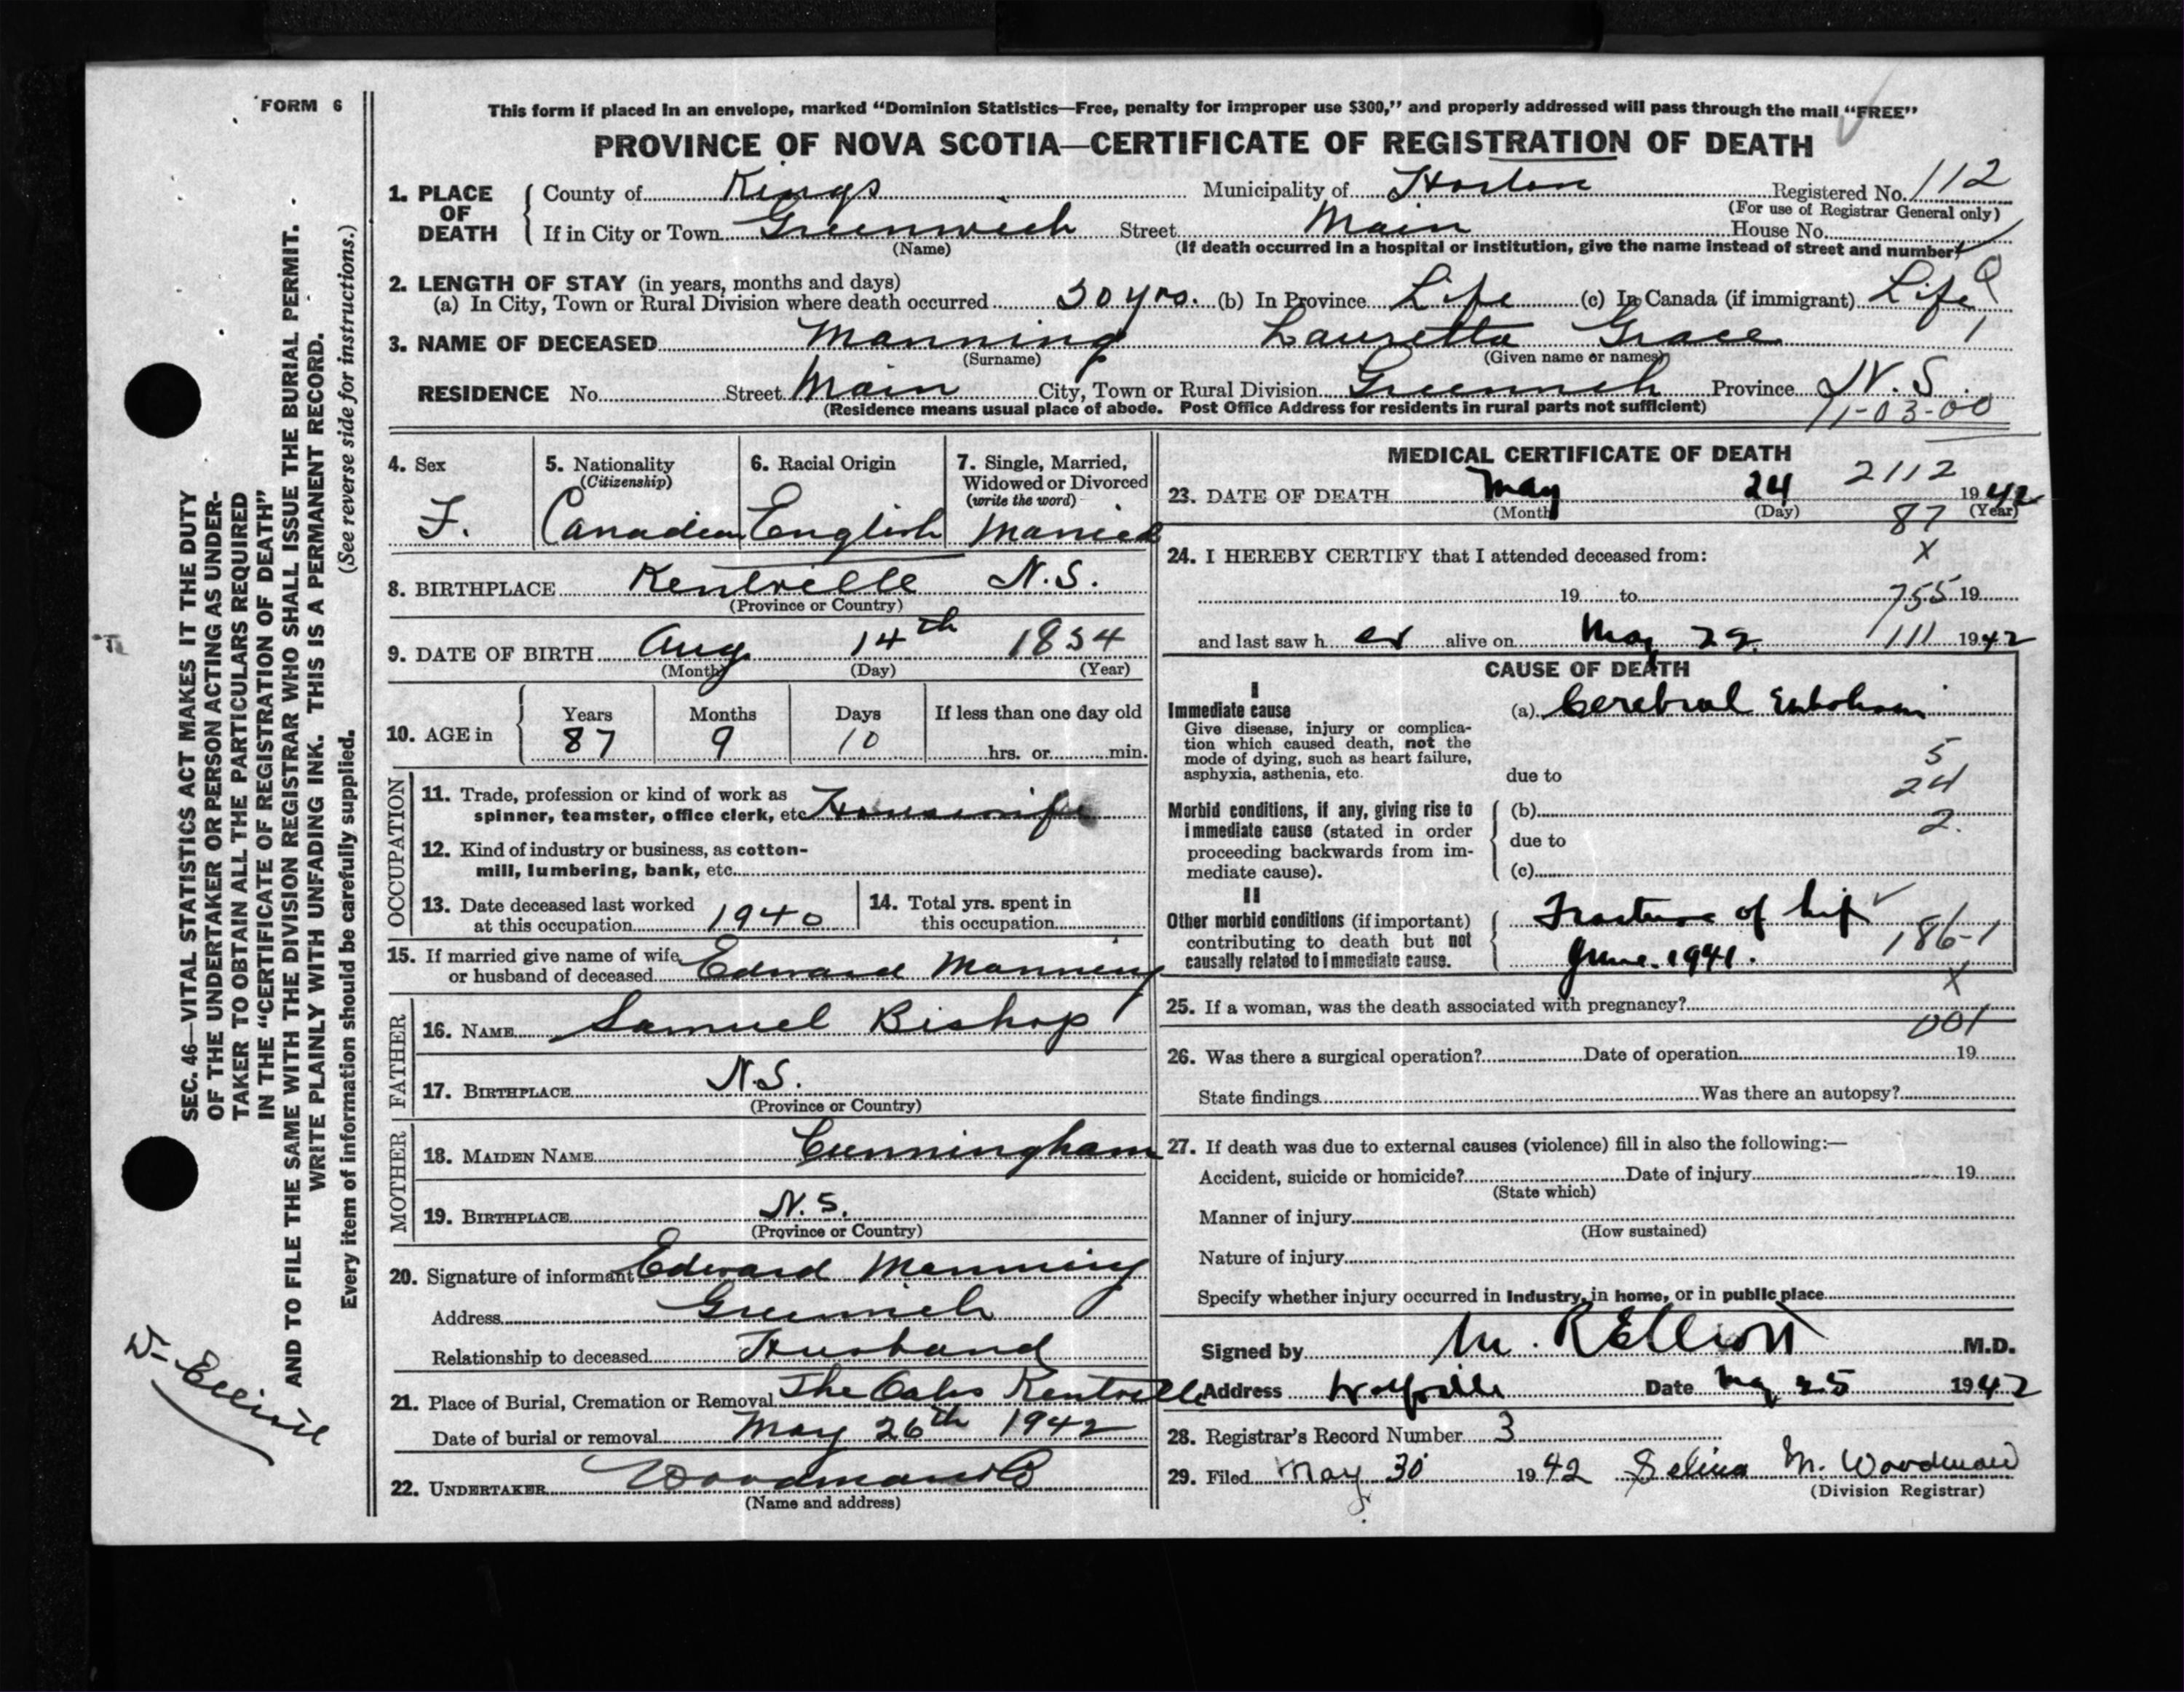 FORM 6
This form if placed in an envelope, marked “Dominion Statistics—Free, penalty for improper use $300,” and properly addressed will pass through the mail “FREE”
PROVINCE OF NOVA SCOTIA—CERTIFICATE OF REGISTRATION OF DEATH
1. PLACE OF DEATH { County of Kings Municipality of Horton Registered No. 112
(For use of Registrar General only)
If in City or Town Greenwich Street Main House No.
(Name) (If death occurred in a hospital or institution, give the name instead of street and number)
2. LENGTH OF STAY (in years, months and days)
(a) In City, Town or Rural Division where death occurred 30 yrs. (b) In Province Life (c) In Canada (if immigrant) Life
3. NAME OF DECEASED Manning Lauretta Grace
(Surname) (Given name or names)
RESIDENCE No. Street Main City, Town or Rural Division Greenwich Province N.S.
(Residence means usual place of abode. Post Office Address for residents in rural parts not sufficient)
11-03-00
4. Sex F.
5. Nationality (Citizenship) Canadian
6. Racial Origin English
7. Single, Married, Widowed or Divorced (write the word) Married
8. BIRTHPLACE Kentville N.S.
(Province or Country)
9. DATE OF BIRTH Aug 14th 1854
(Month) (Day) (Year)
10. AGE in { Years Months Days If less than one day old
87 9 10 hrs. or min.
OCCUPATION
11. Trade, profession or kind of work as
spinner, teamster, office clerk, etc. Housewife
12. Kind of industry or business, as cotton-
mill, lumbering, bank, etc.
13. Date deceased last worked at this occupation 1940
14. Total yrs. spent in this occupation
15. If married give name of wife
or husband of deceased Edward Manning
FATHER
16. NAME Samuel Bishop
17. BIRTHPLACE N.S.
(Province or Country)
MOTHER
18. MAIDEN NAME Cunningham
19. BIRTHPLACE N.S.
(Province or Country)
20. Signature of informant Edward Manning
Address Greenwich
Relationship to deceased Husband
21. Place of Burial, Cremation or Removal The Oaks Kentville
Date of burial or removal May 26th 1942
22. UNDERTAKER
(Name and address)
MEDICAL CERTIFICATE OF DEATH
2112
23. DATE OF DEATH May 24 1942
(Month) (Day) (Year)
87
24. I HEREBY CERTIFY that I attended deceased from: X
19 to 755 19
and last saw her alive on May 111 1942
CAUSE OF DEATH
I
Immediate cause (a) Cerebral Embolism
Give disease, injury or complica-
tion which caused death, not the
mode of dying, such as heart failure,
asphyxia, asthenia, etc.
due to
5
24
Morbid conditions, if any, giving rise to (b) 2.
immediate cause (stated in order due to
proceeding backwards from im-
mediate cause). (c)
II
Other morbid conditions (if important) Fracture of hip
contributing to death but not 186-1
causally related to immediate cause. June 1941.
X
25. If a woman, was the death associated with pregnancy?
001
26. Was there a surgical operation? Date of operation 19
State findings Was there an autopsy?
27. If death was due to external causes (violence) fill in also the following:—
Accident, suicide or homicide? Date of injury 19
(State which)
Manner of injury
(How sustained)
Nature of injury
Specify whether injury occurred in Industry, in home, or in public place
Signed by M. R Elliott M.D.
Address Wolfville Date May 25 1942
28. Registrar's Record Number 3
29. Filed May 30 1942 Selina M. Woodman
(Division Registrar)
SEC. 46—VITAL STATISTICS ACT MAKES IT THE DUTY
OF THE UNDERTAKER OR PERSON ACTING AS UNDER-
TAKER TO OBTAIN ALL THE PARTICULARS REQUIRED
IN THE “CERTIFICATE OF REGISTRATION OF DEATH”
AND TO FILE THE SAME WITH THE DIVISION REGISTRAR WHO SHALL ISSUE THE BURIAL PERMIT.
WRITE PLAINLY WITH UNFADING INK. THIS IS A PERMANENT RECORD.
Every item of information should be carefully supplied. (See reverse side for instructions.)
Dr Elliott